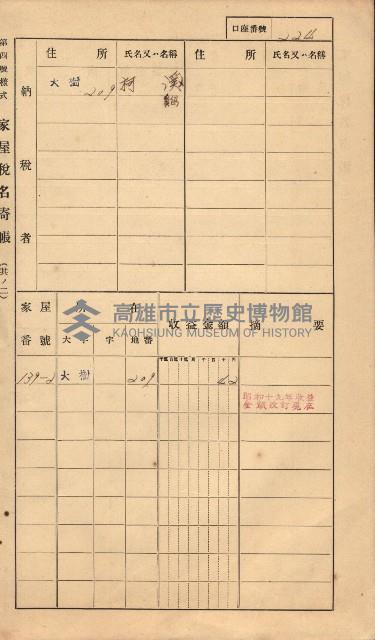 口座番號 224
第四號樣式 家屋稅名寄帳 (其ノ二)
納稅者
住所 氏名又ハ名稱 住所 氏名又ハ名稱
大樹 209 柯
高雄市立歷史博物館
KAOHSIUNG MUSEUM OF HISTORY
家屋番號 所在 收益金額 摘要
大字 字 地番
139-2 大樹 209 62
昭和十九年收益
金額改訂見底